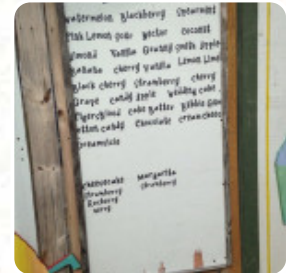 Watermelon Blackberry Spearmint
Pink Lemonade Nectar Coconut
Almond Vanilla Granny Smith Apple
Banana Cherry Vanilla Lemon Lime
Black Cherry Strawberry Cherry
Grape Candy Apple Wedding Cake
Tigers Blood Cake Batter Bubble Gum
Cotton Candy Chocolate Cream Cheese
Dreamsicle
Cheesecake Margarita
Strawberry Strawberry